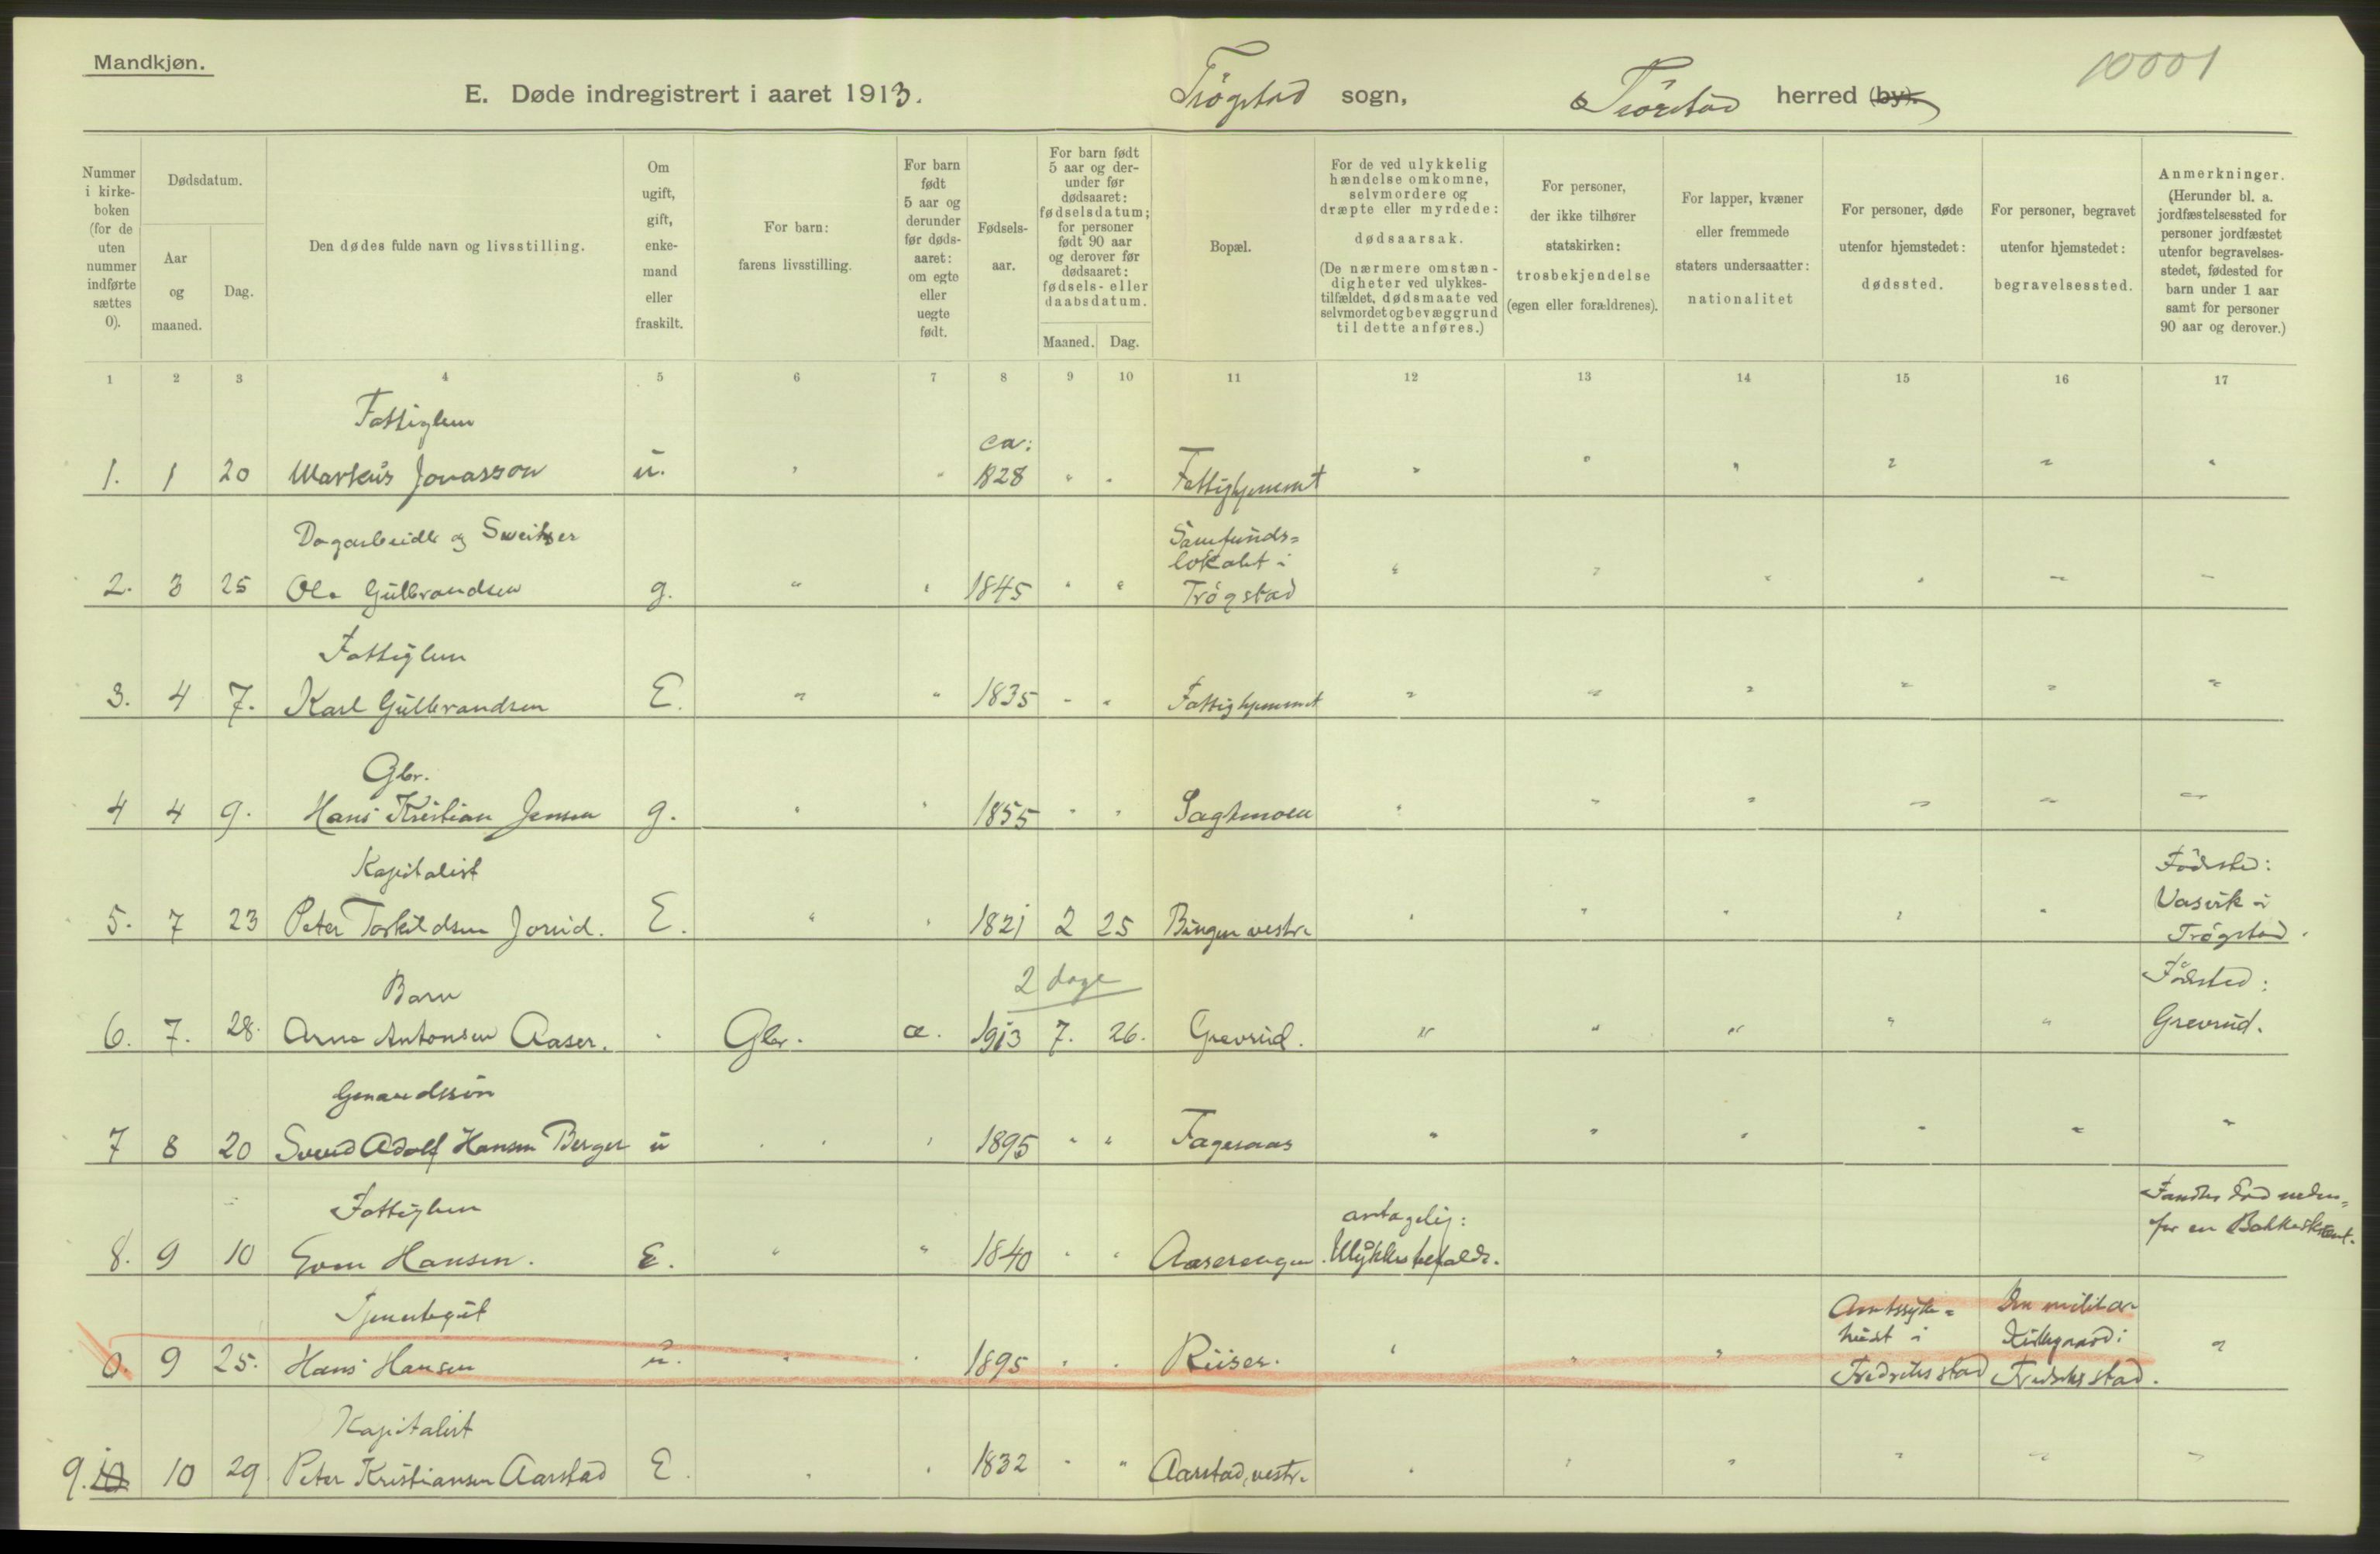 Mandkjøn.
E. Døde indregistrert i aaret 1913. Trøgstad sogn, Trøgstad herred (by).
10001
Nummer i kirke-boken (for de uten nummer indførte sættes 0).
Dødsdatum.
Aar og maaned.
Dag.
Den dødes fulde navn og livsstilling.
Om ugift, gift, enke-mand eller fraskilt.
For barn: farens livsstilling.
For barn født 5 aar og derunder før døds-aaret: om egte eller uegte født.
Fødsels-aar.
For barn født 5 aar og der-under før dødsaaret: fødselsdatum; for personer født 90 aar og derover før dødsaaret: fødsels- eller daabsdatum.
Maaned. Dag.
Bopæl.
For de ved ulykkelig hændelse omkomne, selvmordere og dræpte eller myrdede: dødsaarsak.
(De nærmere omstæn-digheter ved ulykkes-tilfældet, dødsmaate ved selvmordet og bevæggrund til dette anføres.)
For personer, der ikke tilhører statskirken: trosbekjendelse (egen eller forældrenes).
For lapper, kvæner eller fremmede staters undersaatter: nationalitet
For personer, døde utenfor hjemstedet: dødssted.
For personer, begravet utenfor hjemstedet: begravelsessted.
Anmerkninger. (Herunder bl. a. jordfæstelsessted for personer jordfæstet utenfor begravelses-stedet, fødested for barn under 1 aar samt for personer 90 aar og derover.)
1 2 3 4 5 6 7 8 9 10 11 12 13 14 15 16 17
Fattiglem
ca:
1. 1 20 Markus Jonasson u. " " 1828 " " Fattighjemmet " " " " " "
Dagarbeider og Sveitser
Samfunds=
lokalet i
2. 3 25 Ole Gulbrandsen g. " " 1845 " " Trøgstad " " " " " "
Fattiglem
3. 4 7. Karl Gulbrandsen E. " " 1835 " " Fattighjemmet " " " " " "
Gbr.
4 4 9. Hans Kristian Jensen g. " " 1855 " " " " " " " "
Kapitalist
Födsted:
Vasvik i
5. 7 23 Peter Torkildsen E. " " 1821 2 25 Bingen vestre " " " " " Trøgstad.
Barn
2 dage
Födsted:
6. 7. 28. Arne Antonsen Aaser. " Gbr. æ. 1913 7. 26. Grevrud. " " " " " Grevrud.
Gmandssön
7 8 20 Svend Adolf Hansen Berger u " " 1895 " " Fageraas " " " " " "
Fattiglem
antagelig:
Fandtes död neden=
for en Bakkeskrent.
8. 9 10 Even Hansen. E. " " 1840 " " Aaserengen Ulykkestefælde.
Tjenestegut
Amtssyke=
huset i
Den militære
Kirkegaard i
0. 9 25. Hans Hansen u. " " 1895 " " Riiser. " " " Fredriksstad Fredriksstad. "
Kapitalist
9. 10 10 29 Peter Kristiansen Aarstad E. " " 1832 " " Aarstad, vestre " " " " " "